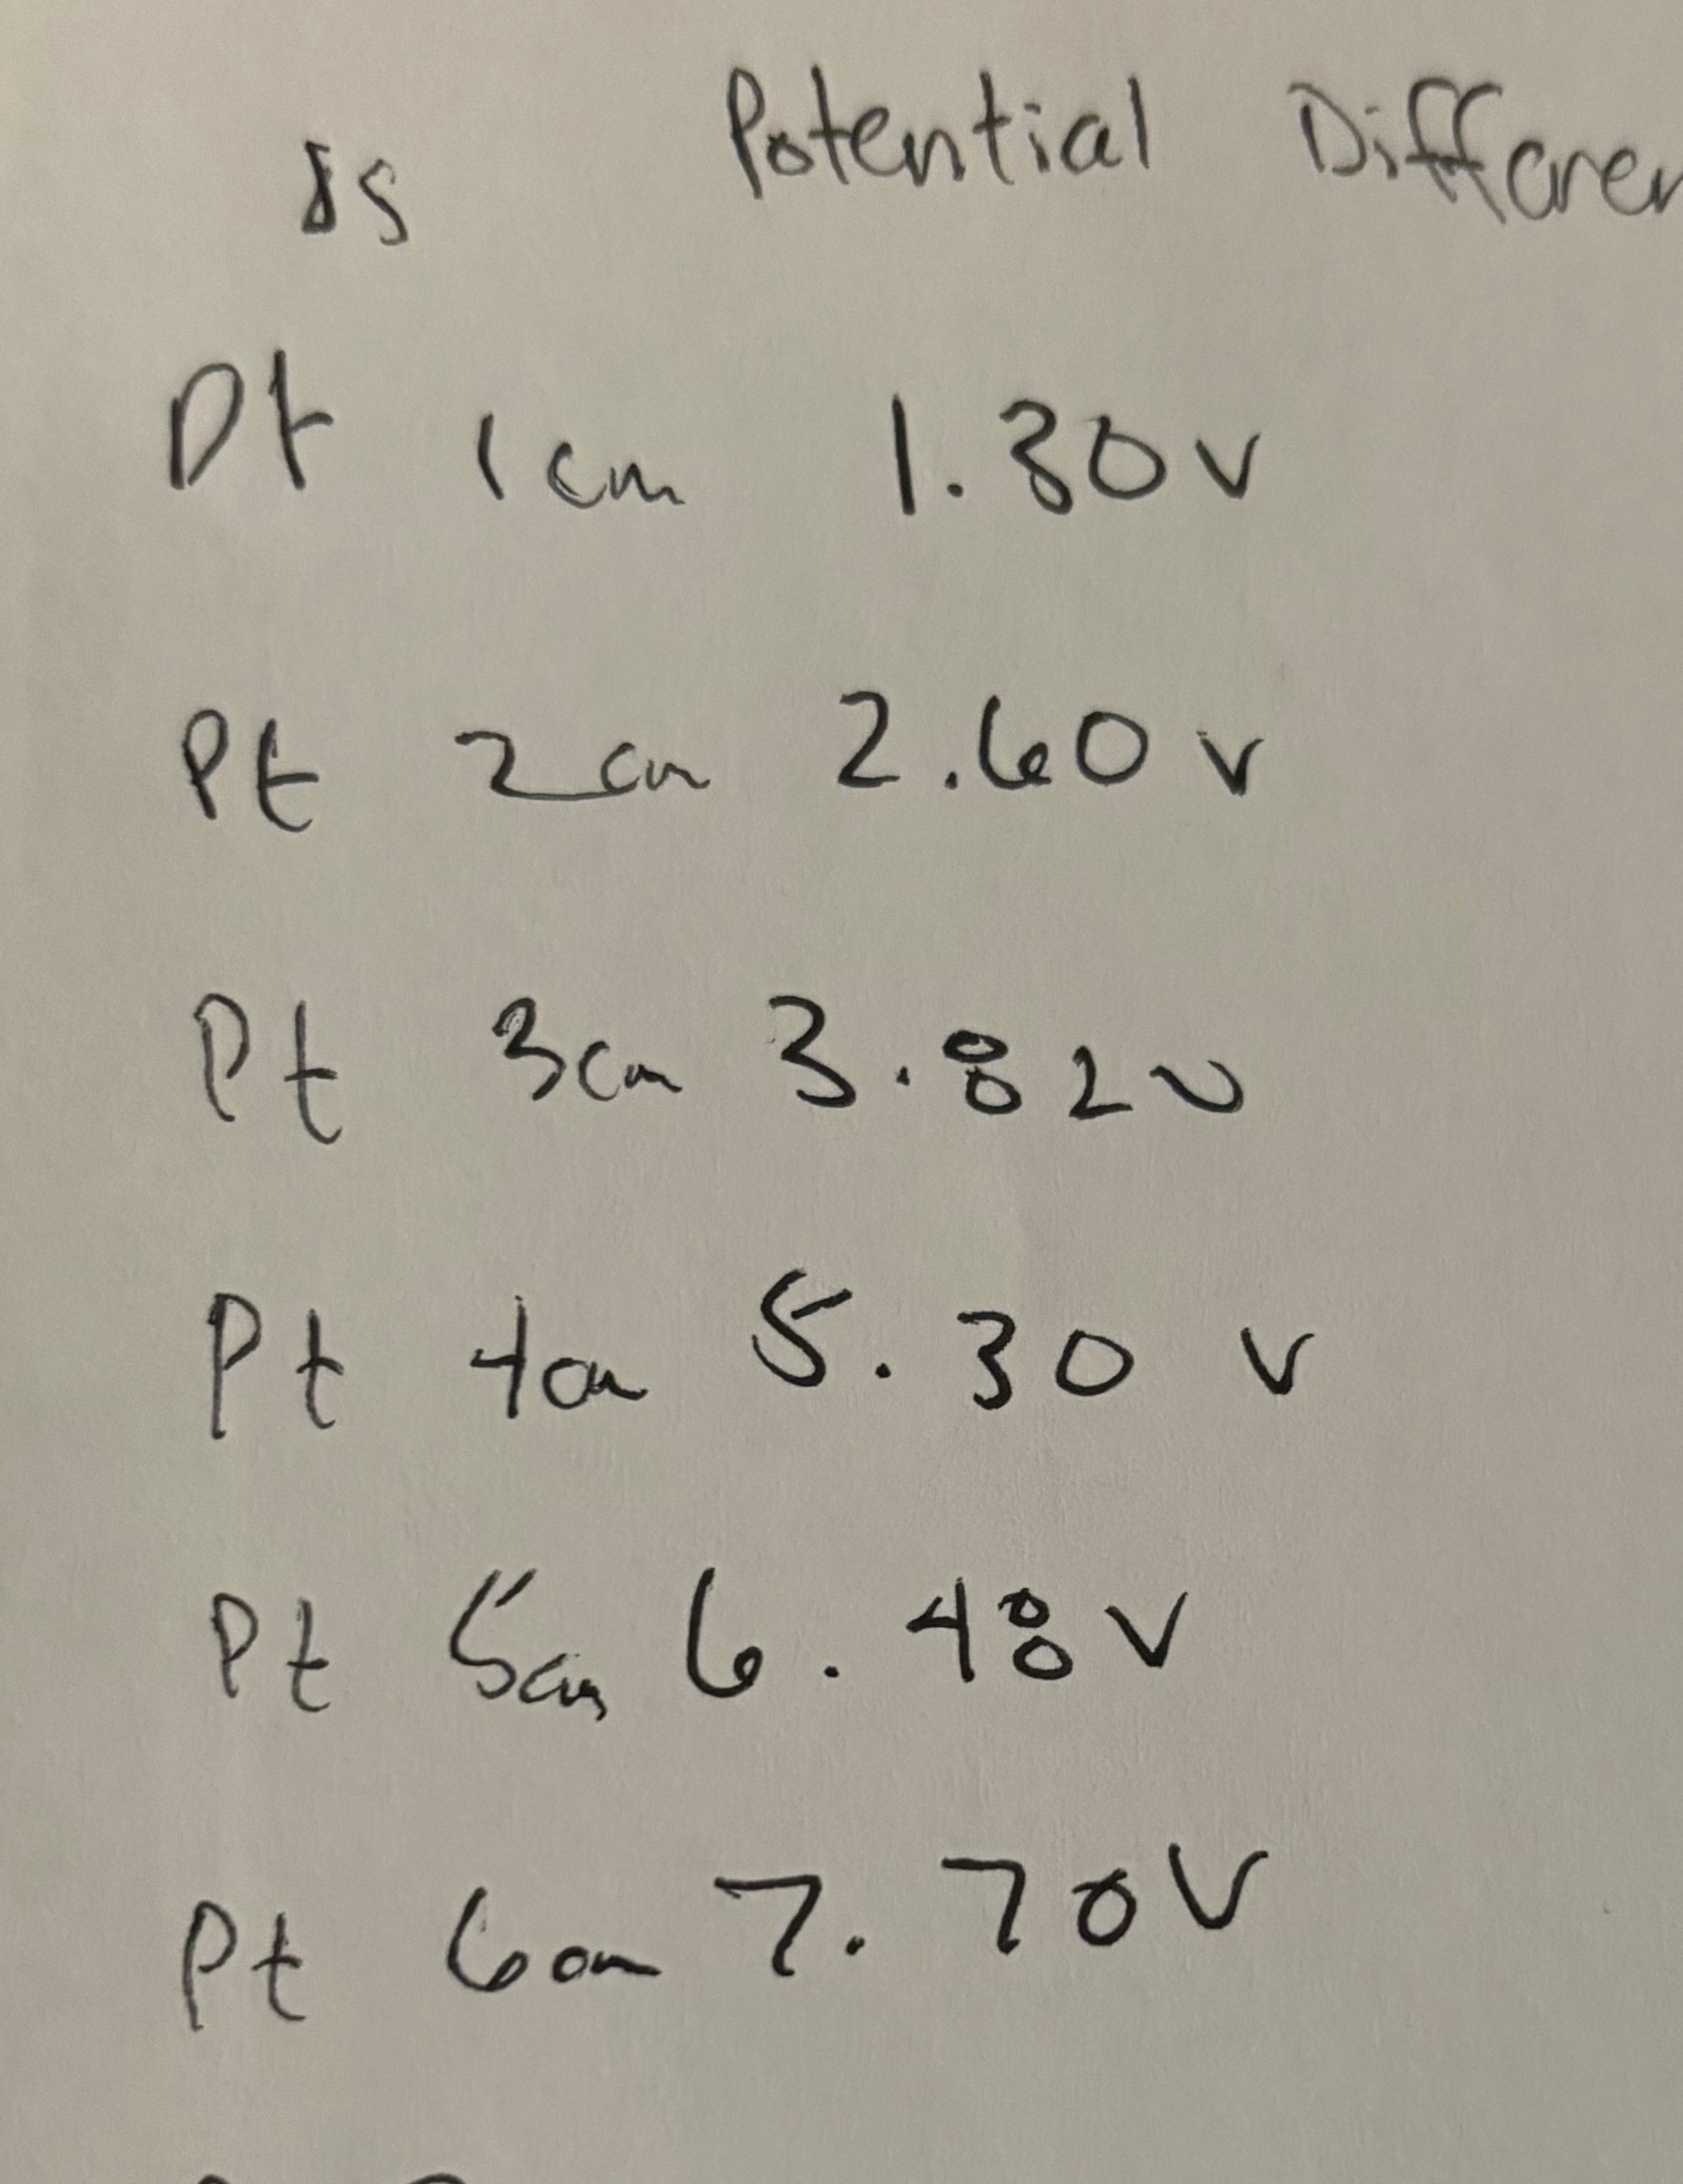 ds Potential Differen
Pt 1cm 1.30v
Pt 2cm 2.60 v
Pt 3cm 3.82v
Pt 4cm 5.30 v
Pt 5cm 6.48V
Pt 6cm 7.70V